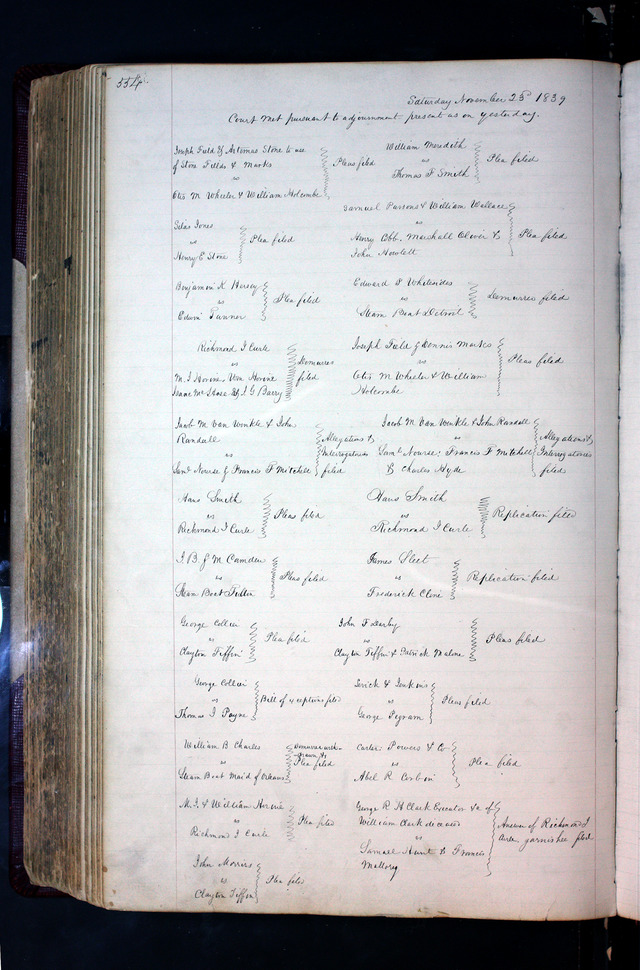 554.
Saturday November 23d 1839
Court met pursuant to adjournment present as on yesterday.
Joseph Field & Artemas Stone to use
of Stone Fields & Marks
vs
Otis M Wheeler & William Holcombe
Pleas filed
William Meredith
vs
Thomas F Smith
Plea filed
Silas Jones
vs
Henry E Stone
Plea filed
Samuel Parsons & William Wallace
vs
Henry Cobb, Marshall Glover &
John Howlett
Plea filed
Benjamin K Hersey
vs
Edwin Tunnor
Plea filed
Edward P Whitesides
vs
Steam Boat Detroit
Demurrer filed
Richmond J Curle
vs
M. J Hovine, Wm Hovine
Isaac Mc Shose & J G Barry
Demurrer
filed
Joseph Field & Dennis Marks
vs
Otis M Wheeler & William
Holcombe
Pleas filed
Jacob M. Van Winkle & John
Randall
vs
Saml Nourse & Francis P Mitchell
Allegations &
Interrogatories
filed
Jacob M Van Winkle & John Randall
vs
Saml Nourse, Francis P Mitchell
& Charles Hyde
Allegations &
Interrogatories
filed
Hans Smith
vs
Richmond J Curle
Pleas filed
Hans Smith
vs
Richmond J Curle
Replication filed
J B & M Camden
vs
Steam Boat
Pleas filed
James Sleet
vs
Frederick Cline
Replication filed
George Collier
vs
Clayton Tiffin
Plea filed
John F Darby
vs
Clayton Tiffin & Patrick Malone
Pleas filed
George Collier
vs
Thomas J Payne
Bill of exceptions filed
& Jenkins
vs
George Pegram
Pleas filed
William B Charles
vs
Steam Boat Maid of Orleans
Demurrer with-
drawn &
Plea filed
Carter Powers & Co
vs
Abel R Corbin
Plea filed
M. J. & William Hovine
vs
Richmond J Curle
Plea filed
George R H Clark Executor &c of
William Clark deceased
vs
Samuel Hunt & Francis
Mallory
Answer of Richmond J
Curle garnishee filed
John Morris
vs
Clayton Tiffin
Plea filed